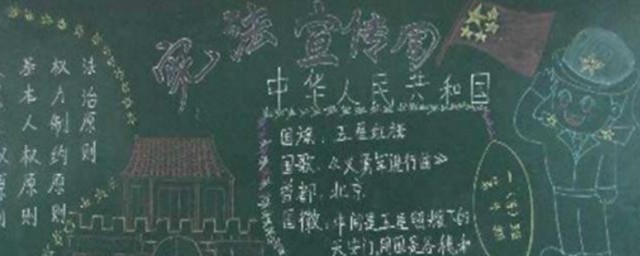 宪法宣传周
中华人民共和国
国旗：五星红旗
国歌：《义勇军进行曲》
首都：北京
国徽：中间是五星照耀下的
天安门，周围是谷穗和
法治原则
权力制约原则
基本人权原则
权原则